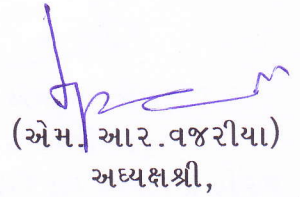 (એમ. આર.વજરીયા)
અધ્યક્ષશ્રી,